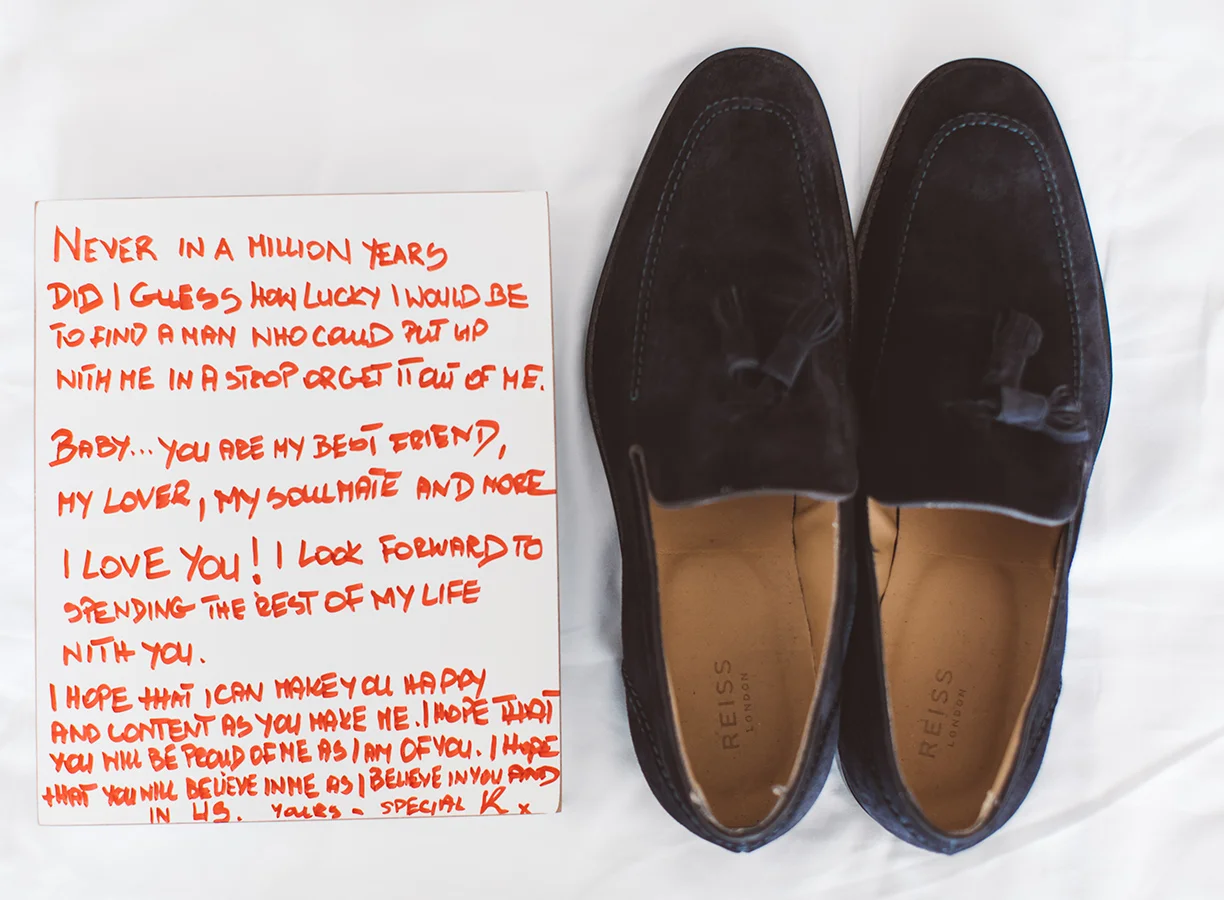 NEVER IN A MILLION YEARS
DID I GUESS HOW LUCKY I WOULD BE
TO FIND A MAN WHO COULD PUT UP
WITH ME IN A STROP OR GET IT OUT OF ME.
BABY... YOU ARE MY BEST FRIEND,
MY LOVER, MY SOULMATE AND MORE
I LOVE YOU! I LOOK FORWARD TO
SPENDING THE REST OF MY LIFE
WITH YOU.
I HOPE THAT I CAN MAKE YOU HAPPY
AND CONTENT AS YOU MAKE ME. I HOPE THAT
YOU WILL BE PROUD OF ME AS I AM OF YOU. I HOPE
THAT YOU WILL BELIEVE IN ME AS I BELIEVE IN YOU AND
IN US. YOURS - SPECIAL K x
REISS
LONDON
REISS
LONDON